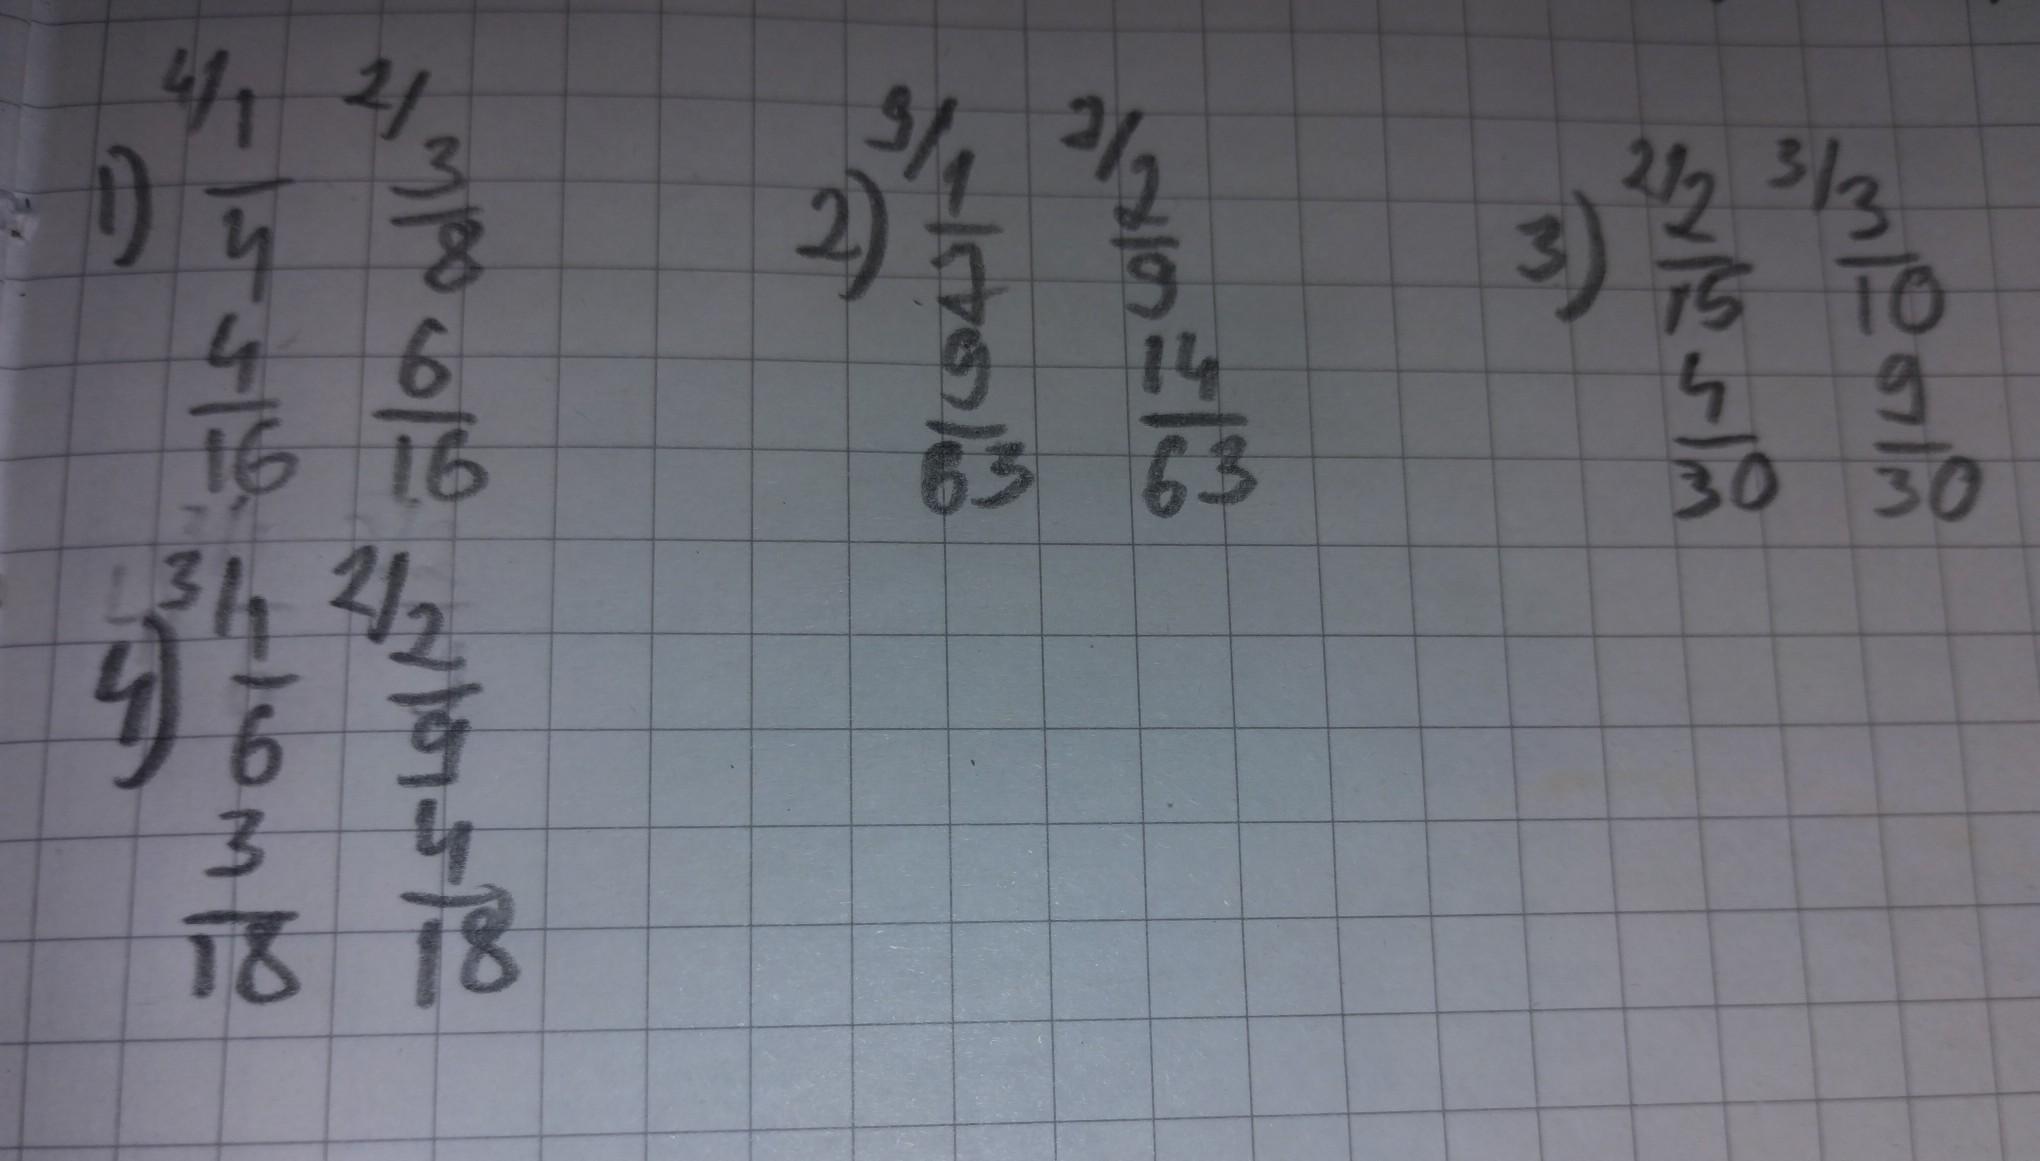 1) 4/ 1/4 2/ 3/8
4/16 6/16
2) 9/ 1/7 7/ 2/9
9/63 14/63
3) 2/ 2/15 3/ 3/10
4/30 9/30
4) 3/ 1/6 2/ 2/9
3/18 4/18